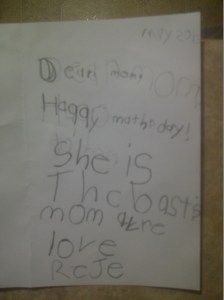 Dear momi
Haggy mathrday!
She is
The bast
mom
love
ReJe